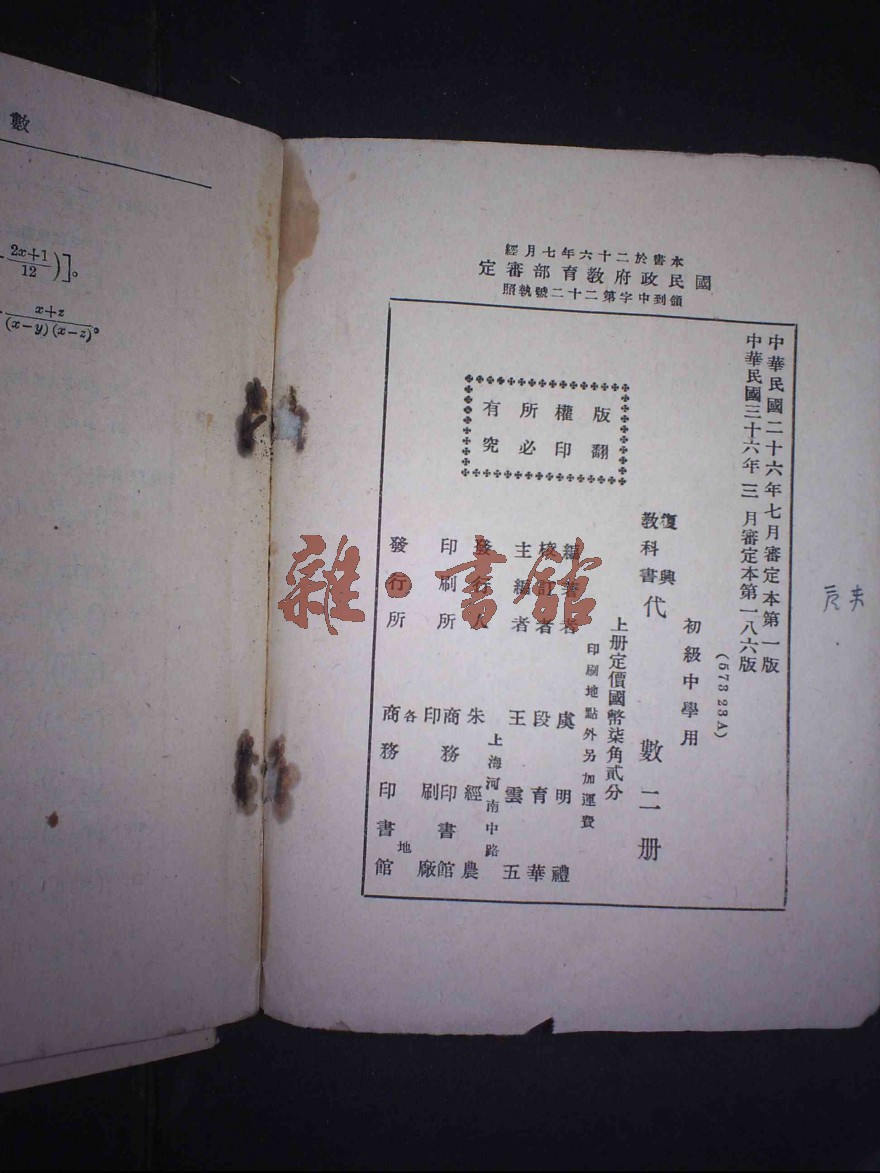 數
2x+1
12
)]。
x+z
(x−y)(x−z)。
本書於二十六年七月經
國民政府教育部審定
領到中字第二十二號執照
中華民國二十六年七月審定本第一版
中華民國三十六年三月審定本第一八六版
(57323A)
版權所有
翻印必究
初級中學用
復興教科書代數二册
上册定價國幣柒角貳分
印刷地點外另加運費
編著者 虞明禮
校訂者 段育華
主編者 王雲五
上海河南中路
發行人 朱經農
印刷所 商務印書館印刷廠
發行所 各地商務印書館
雜·書館